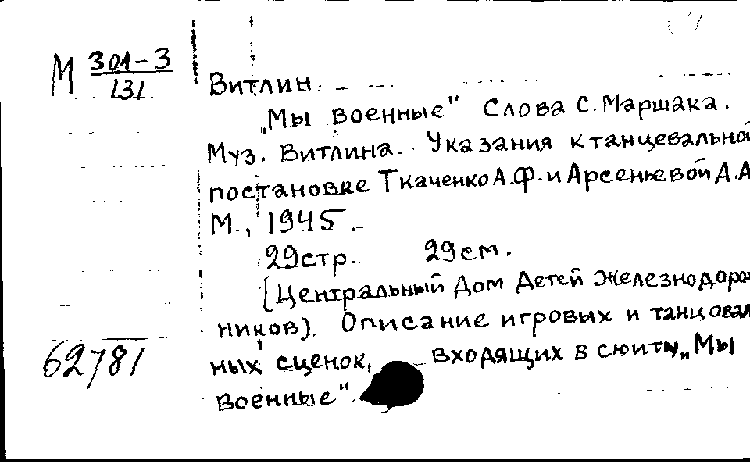 М 301-3
131
Витлин
„Мы военные" Слова С. Маршака.
Муз. Витлина. Указания к танцевально
постановке Ткаченко А.Ф. и Арсеньевой А.А
М., 1945.
29 стр. 29 см.
(Центральный Дом Детей Железнодорож
ников). Описание игровых и танцевал
62781
ных сценок, входящих в сюиту „Мы
военные".